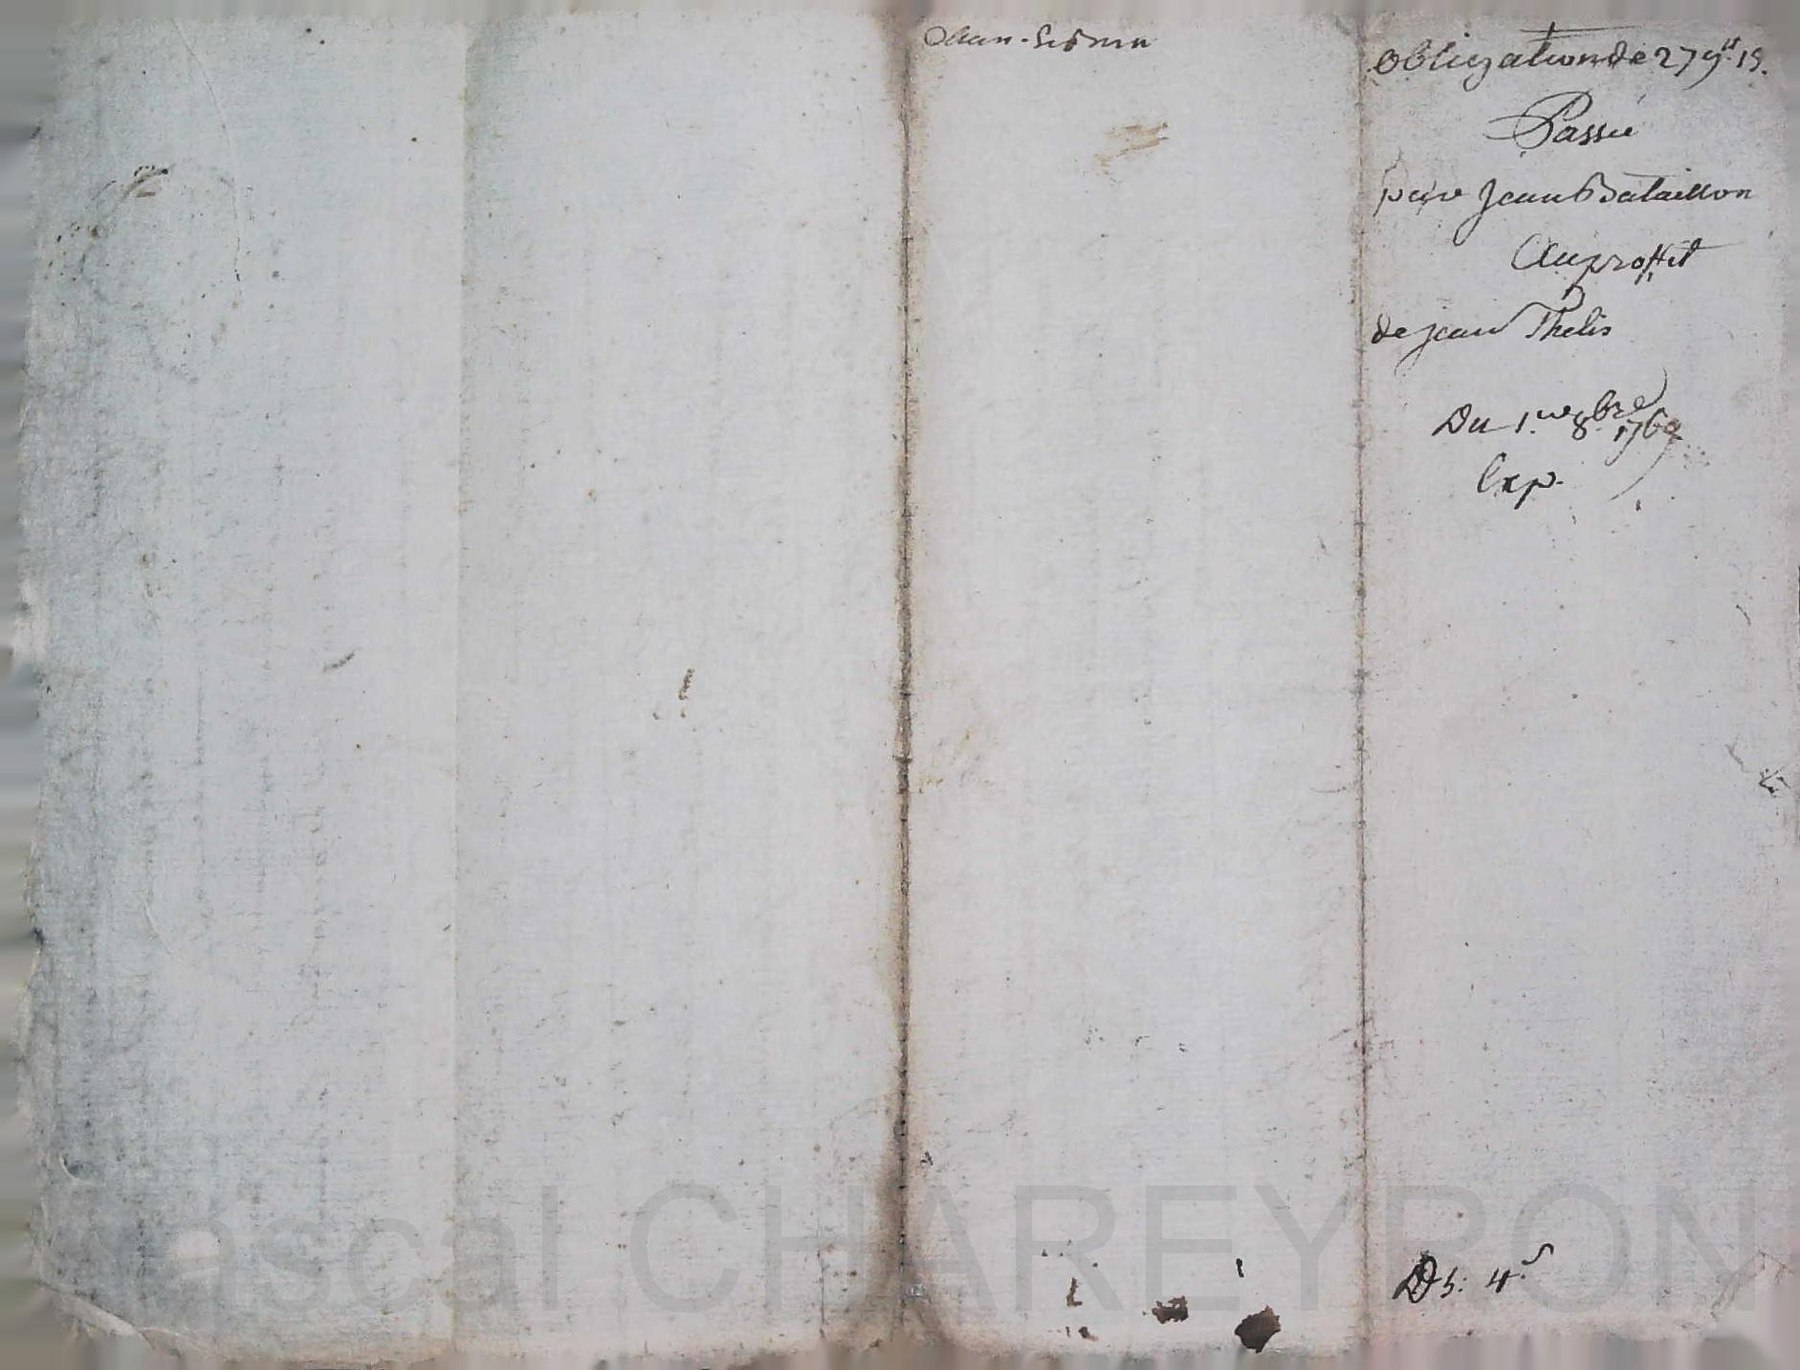 Obligation de 279.tt 15.
Passée
par Jean Bataillon
Au proffit
de jean Thelis
Du 1.er 8.bre 1769
Exp.
4.s
ascal CHAREYRON